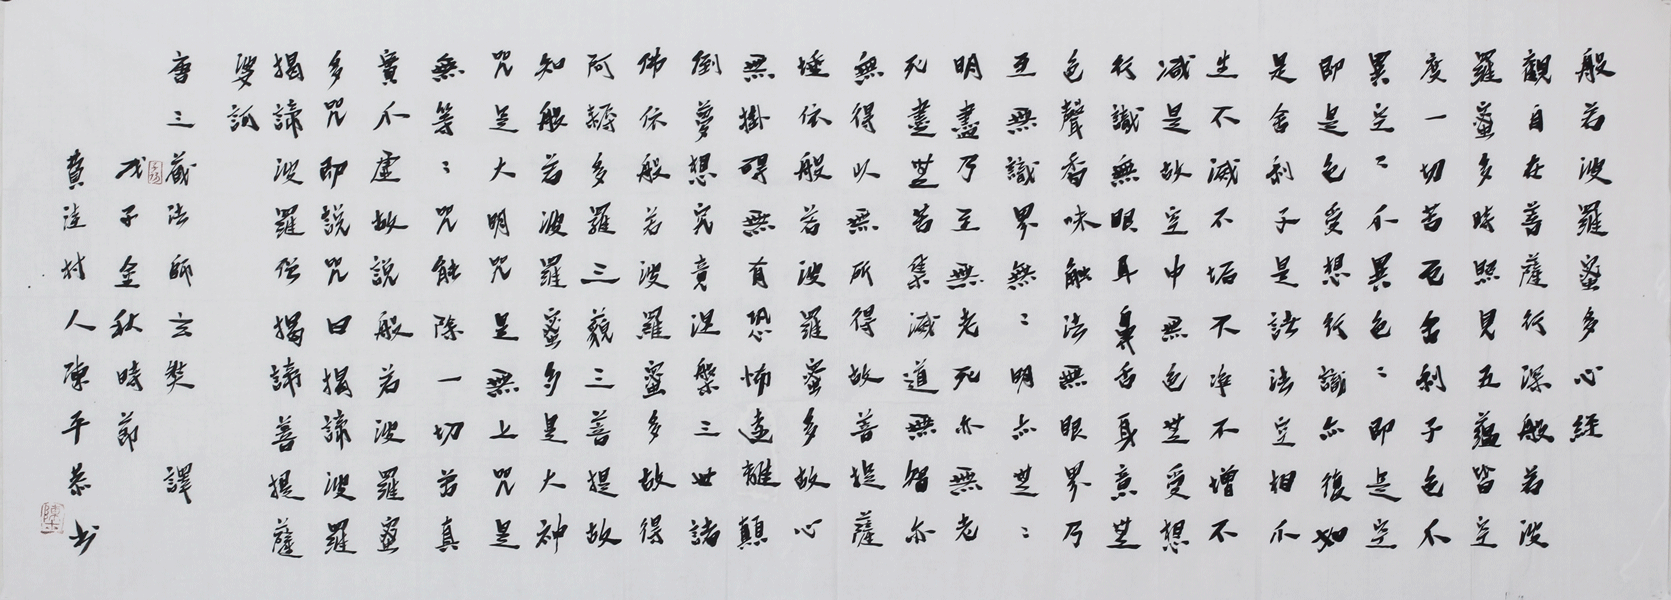 般若波羅蜜多心經
觀自在菩薩行深般若波
羅蜜多時照見五蘊皆空
度一切苦厄舍利子色不
異空〻不異色〻即是空
即是色受想行識亦復如
是舍利子是諸法空相不
生不滅不垢不淨不增不
減是故空中無色無受想
行識無眼耳鼻舌身意無
色聲香味觸法無眼界乃
至無識界無〻明亦無〻
明盡乃至無老死亦無老
死盡無苦集滅道無智亦
無得以無所得故菩提薩
埵依般若波羅蜜多故心
無掛礙無有恐怖遠離顛
倒夢想究竟涅槃三世諸
佛依般若波羅蜜多故得
阿耨多羅三藐三菩提故
知般若波羅蜜多是大神
咒是大明咒是無上咒是
無等〻咒能除一切苦真
實不虛故說般若波羅蜜
多咒即說咒曰揭諦波羅
揭諦波羅僧揭諦菩提薩
婆訶
唐三藏法師玄奘 譯
戊子金秋時節
黄洼村人陳平恭书